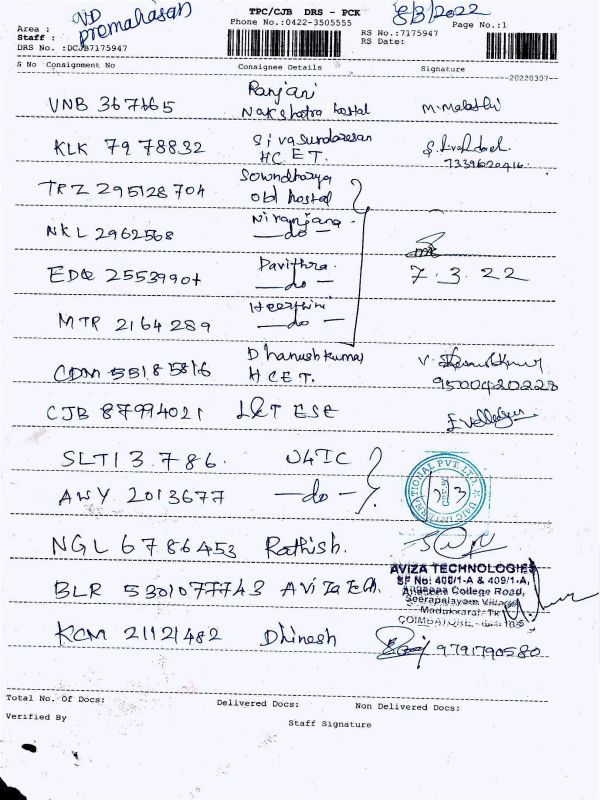 TPC/CJB DRS - PCK
8/3/2022
VD
promahasan
Phone No.:0422-3505555
Page No.:1
Area :
Staff :
RS No.:7175947
DRS No. :DCJB7175947
RS Date:
S No Consignment No Consignee Details Signature
20220307
Ranjani
VNB 367665 Nakshatra hostal
KLK 7978832 Sivasundaresan
HCET.
7339620416
Sowndharya
TPZ 295128704 Old hostal
Niranjana
NKL 2962568 —do—
Pavithra
EDQ 25539904 —do— 7.3.22
MTR 2164289 —do—
Dhanushkumar
CDM 55185816 HCET.
9500420228
CJB 87994021 L&T ESE
SLT13.786. U4IC
AWY 2013677 —do—
NGL 6786453 Rathish.
AVIZA TECHNOLOGIES
SF No: 408/1-A & 409/1-A,
College Road,
BLR 5301077743 Aviza tech.
Seerapalayam Village
Madukkarai-Tk
COIMBATORE
KCM 21121482 Dhinesh 9791790580
Total No. Of Docs: Delivered Docs: Non Delivered Docs:
Verified By
Staff Signature